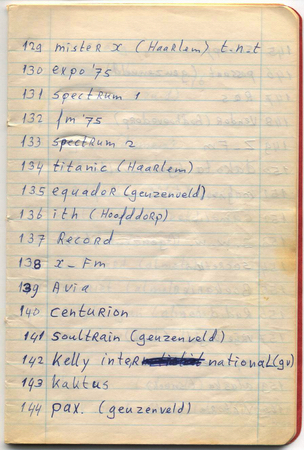 129 misteR x (HaaRlem) t-n-t
130 expo '75
131 spectRum 1
132 fm '75
133 spectRum 2
134 titanic (HaaRlem)
135 equadoR (geuzenveld)
136 ith (HoofddoRp)
137 RecoRd
138 x-Fm
139 Avia
140 centuRion
141 soultRain (geuzenveld)
142 Kelly inteR national (gv)
143 kaktus
144 pax. (geuzenveld)